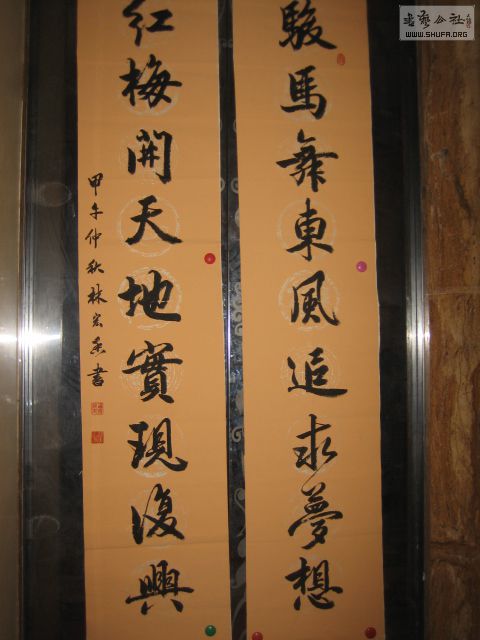 駿馬舞東風追求夢想
紅梅開天地實現復興
甲午仲秋林宏魚書
書藝公社
WWW.SHUFA.ORG